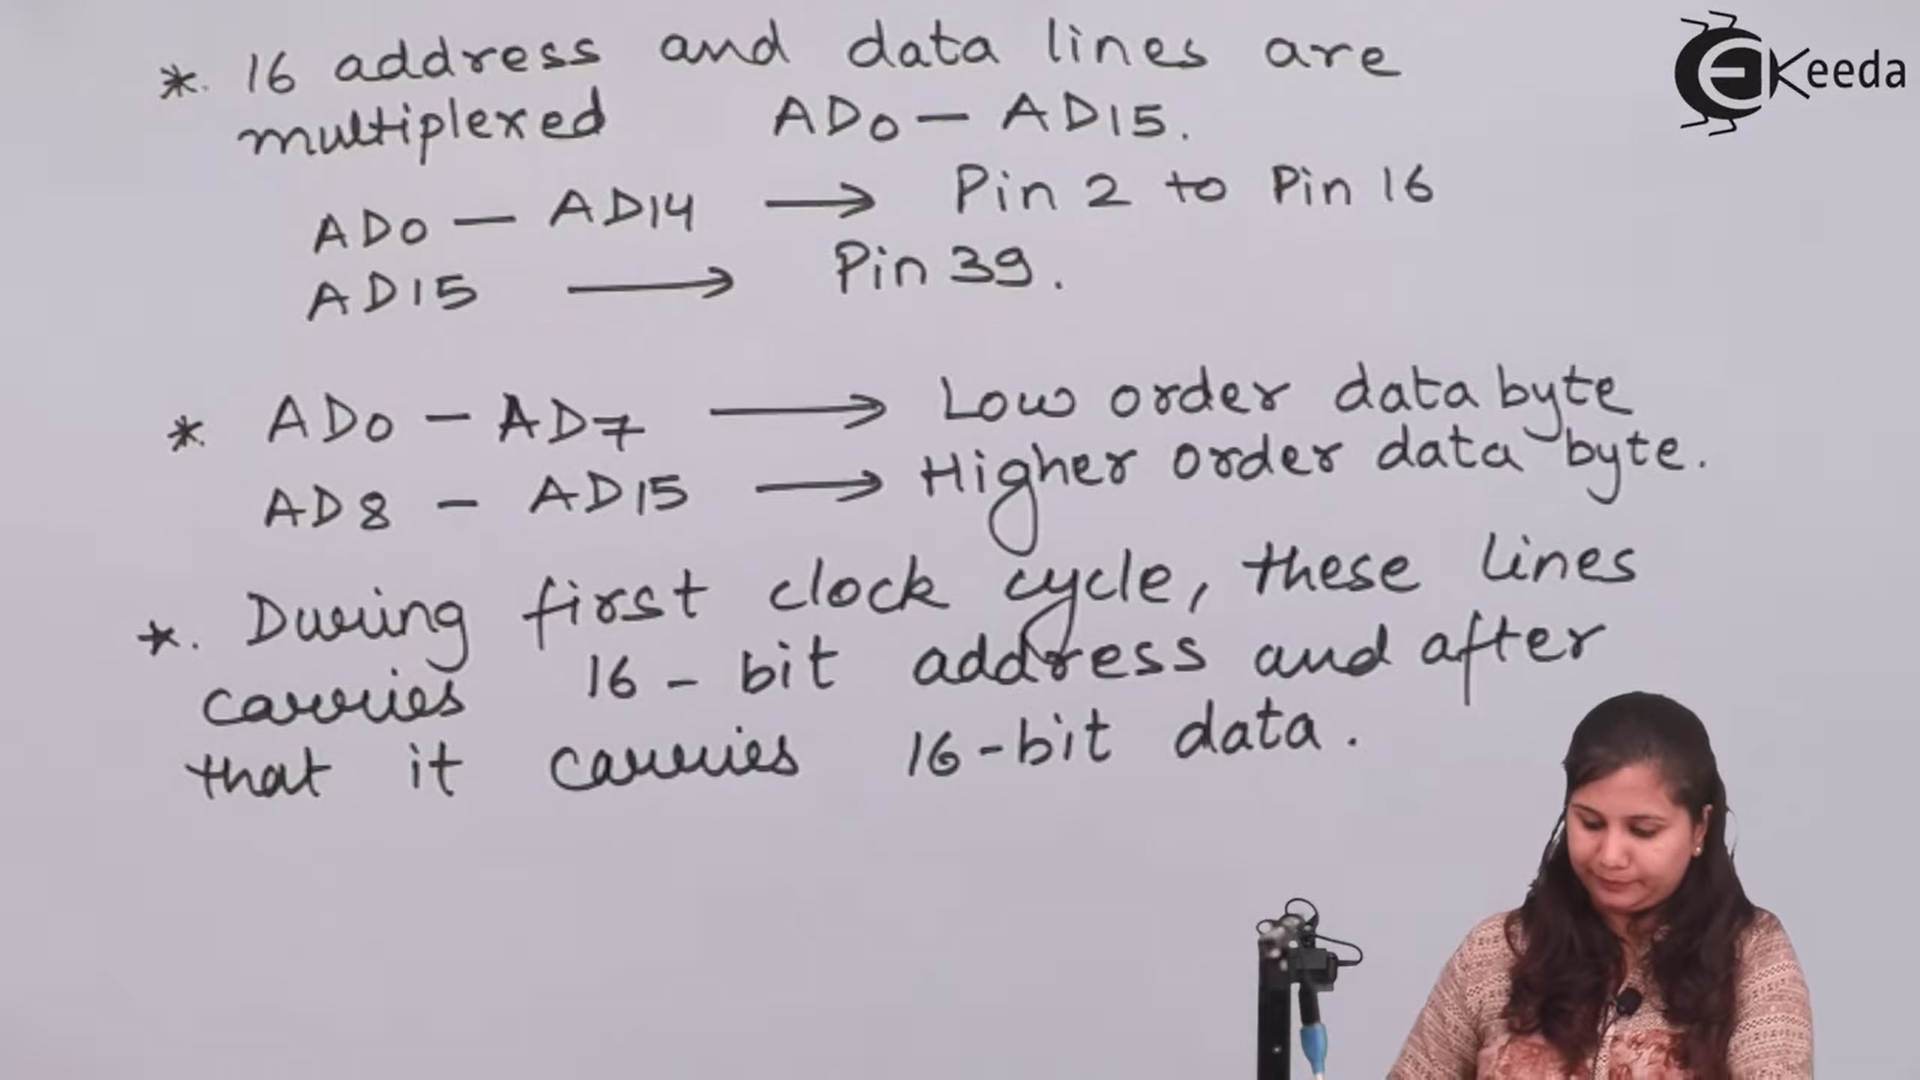 * 16 address and data lines are
multiplexed AD0 — AD15.
AD0 — AD14 → Pin 2 to Pin 16
AD15 → Pin 39.
* AD0 — AD7 → Low order data byte
AD8 - AD15 → Higher order data byte.
*. During first clock cycle, these lines
carries 16-bit address and after
that it carries 16-bit data.
EKeeda